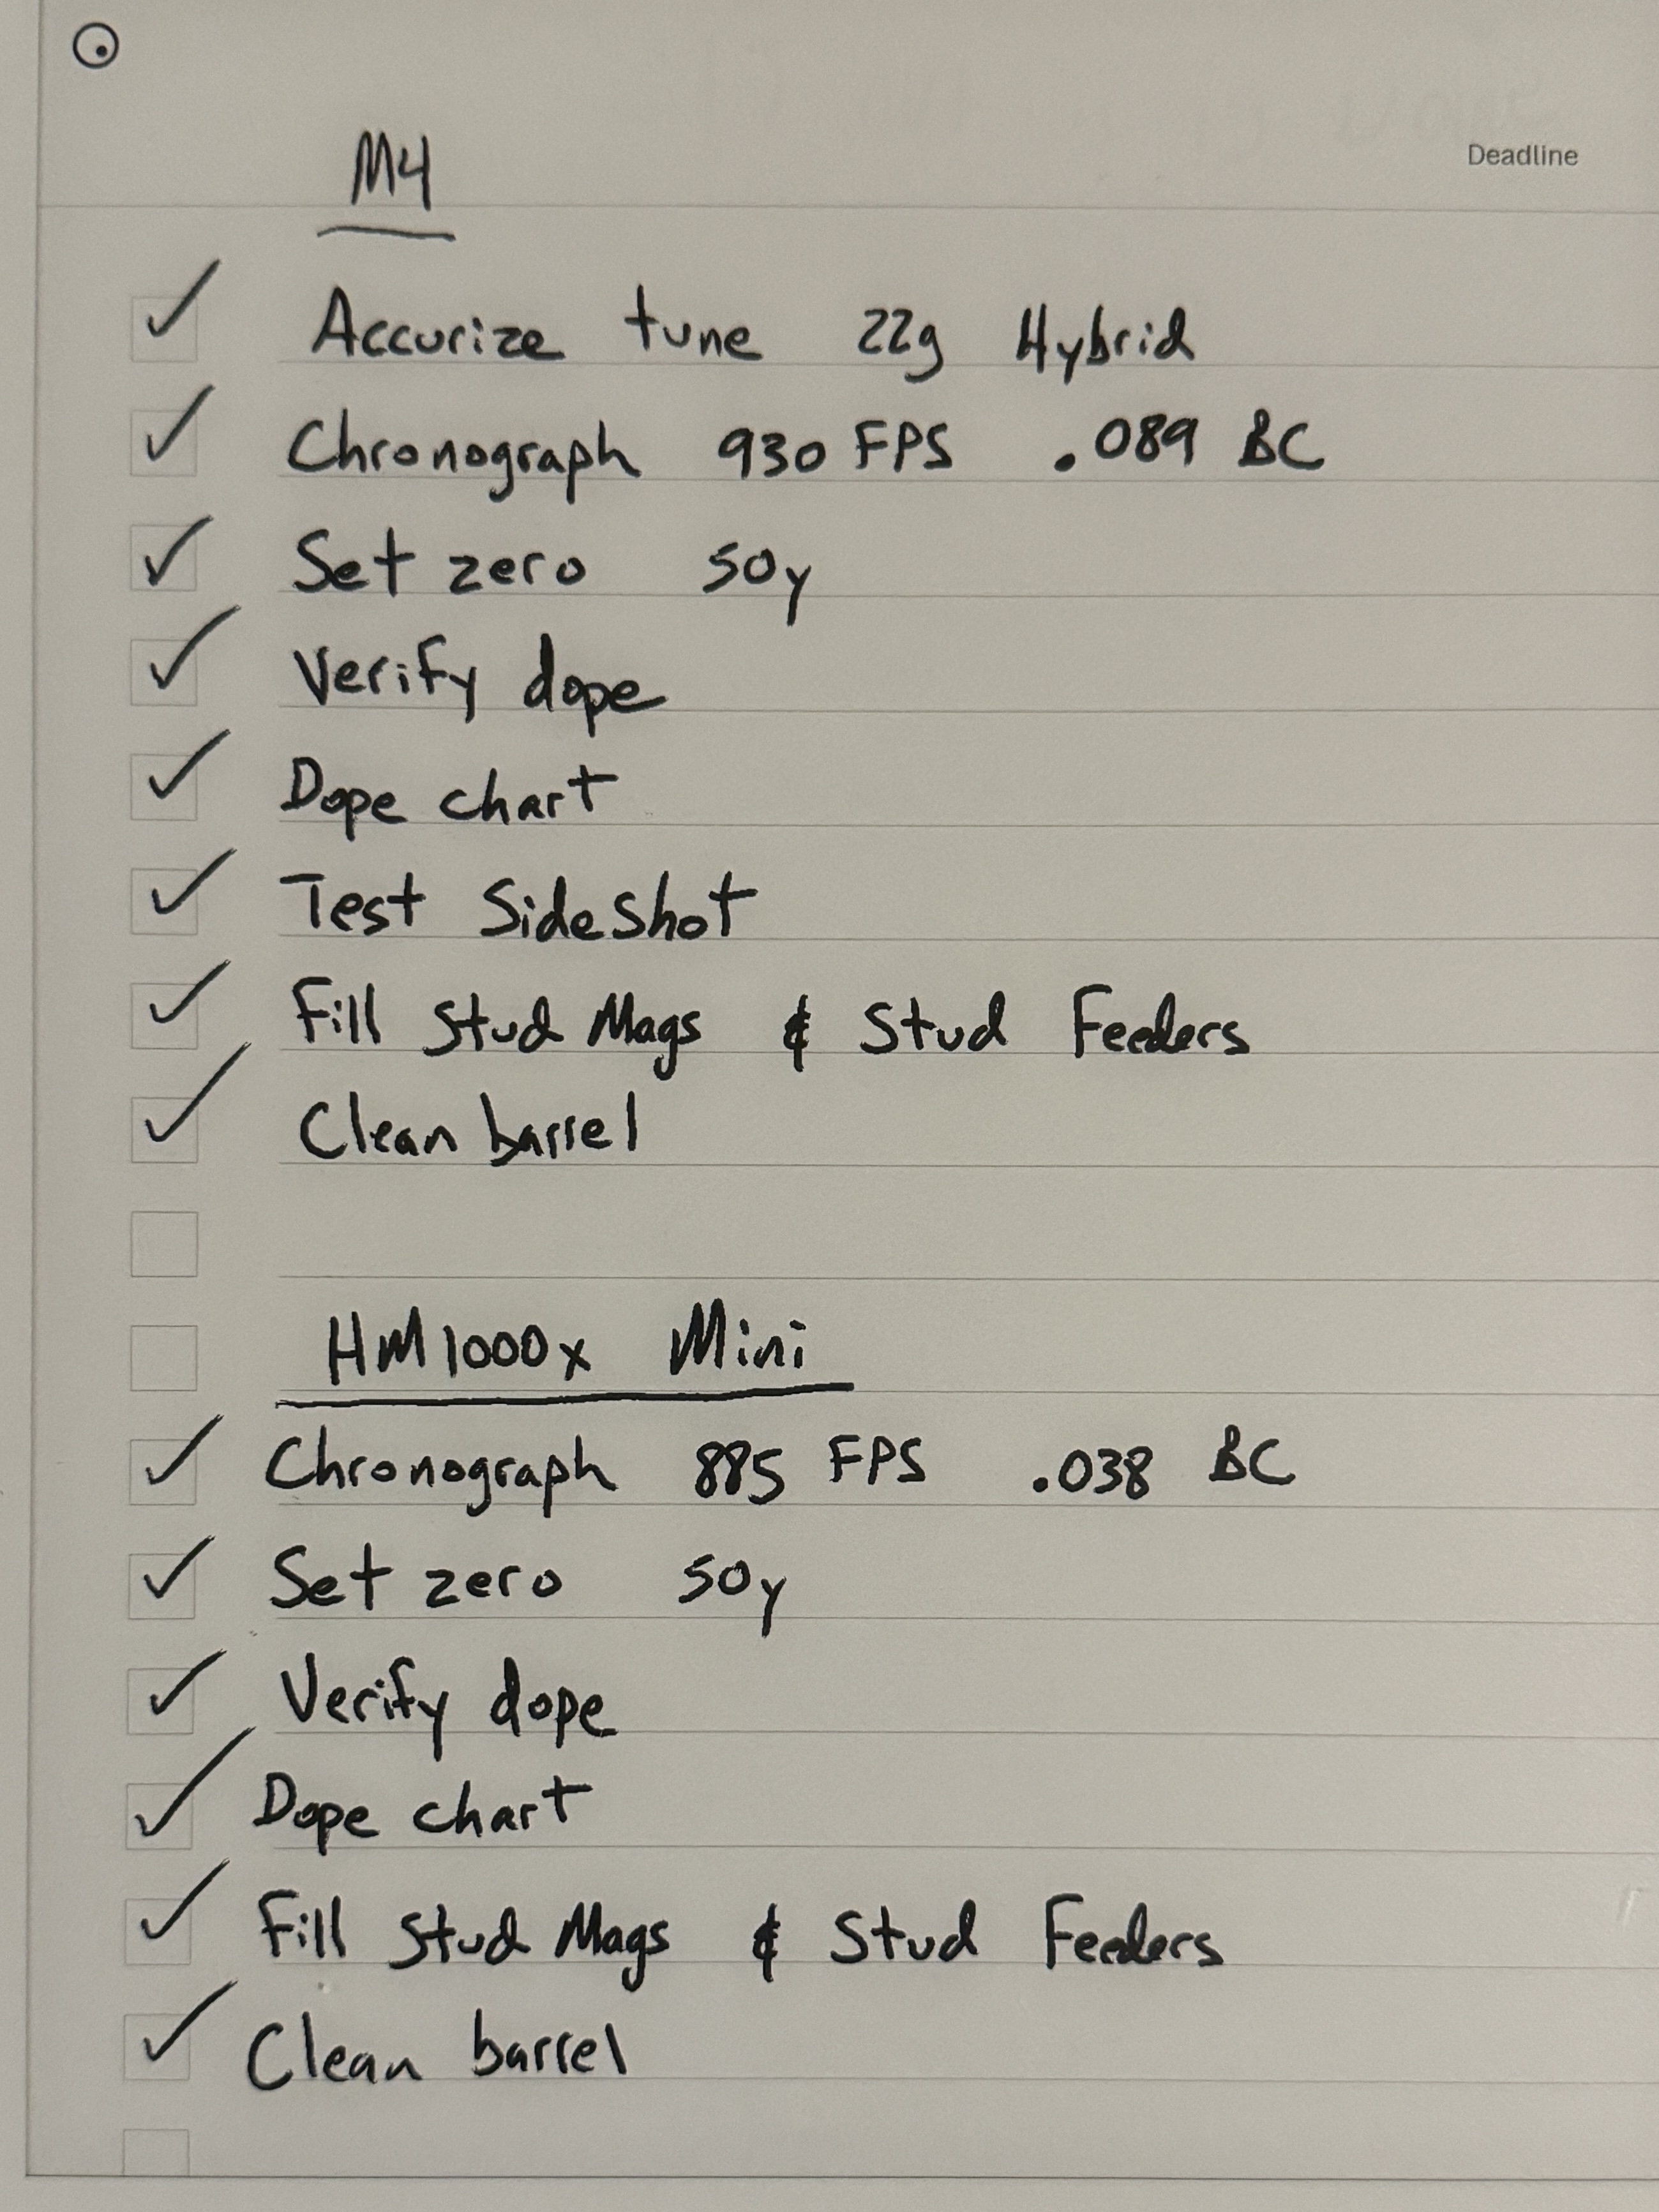 Deadline
M4
Accurize tune 22g Hybrid
Chronograph 930 FPS .089 BC
Set zero 50y
Verify dope
Dope chart
Test SideShot
Fill Stud Mags & Stud Feeders
Clean barrel
HM1000x Mini
Chronograph 885 FPS .038 BC
Set zero 50y
Verify dope
Dope chart
Fill Stud Mags & Stud Feeders
Clean barrel